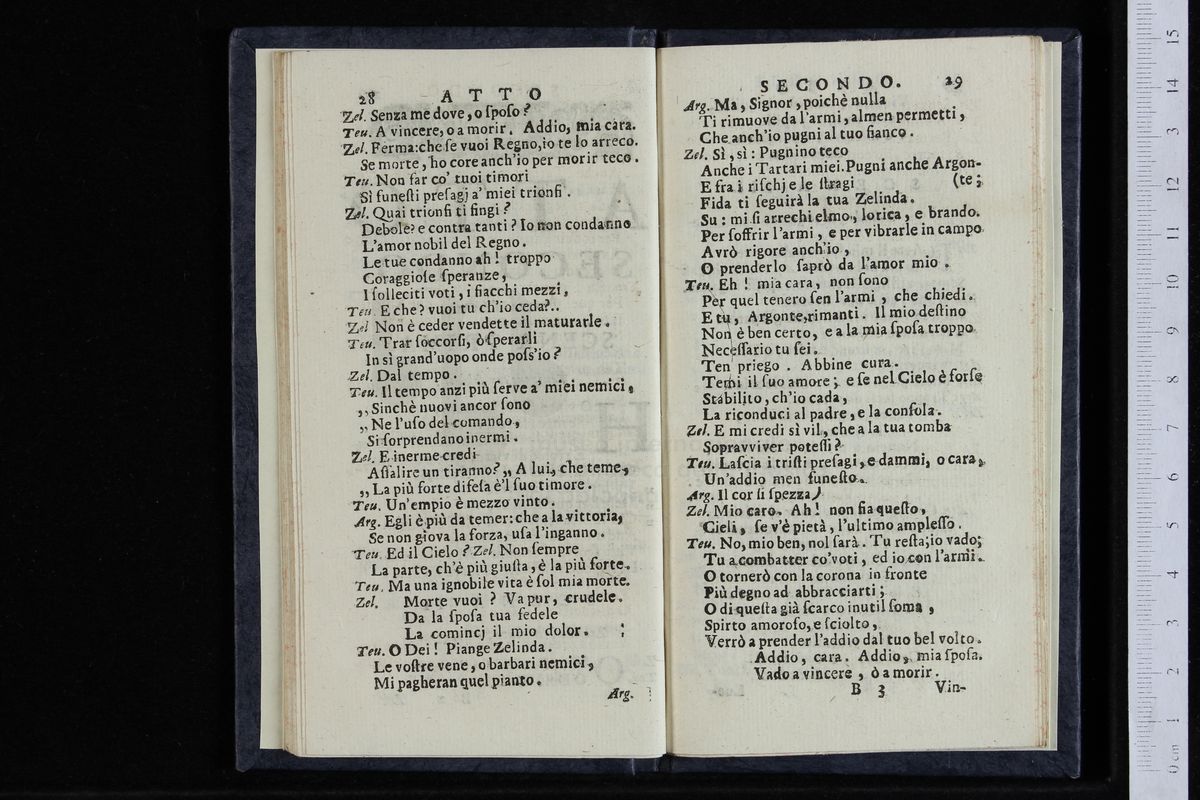 28 ATTO
Zel. Senza me dove, o ſpoſo?
Teu. A vincere, o a morir. Addio, mia cara.
Zel. Ferma: che ſe vuoi Regno, io te lo arreco.
Se morte, ho core anch'io per morir teco.
Teu. Non far co' tuoi timori
Sì funeſti preſagj a' miei trionfi.
Zel. Quai trionfi ti fingi?
Debole? e contra tanti? Io non condanno
L'amor nobil del Regno.
Le tue condanno ah! troppo
Coraggioſe ſperanze,
I ſolleciti voti, i fiacchi mezzi,
Teu. E che? vuoi tu ch'io ceda?..
Zel Non è ceder vendette il maturarle.
Teu. Trar ſoccorſi, ò ſperarli
In sì grand'uopo onde poſs'io?
Zel. Dal tempo.
Teu. Il tempo anzi più ſerve a' miei nemici,
,, Sinchè nuovi ancor ſono
,, Ne l'uſo del comando,
Si ſorprendano inermi.
Zel. E inerme credi
Aſſalire un tiranno? ,, A lui, che teme,
,, La più forte difeſa è'l ſuo timore.
Teu. Un'empio è mezzo vinto.
Arg. Egli è più da temer: che a la vittoria,
Se non giova la forza, uſa l'inganno.
Teu. Ed il Cielo? Zel. Non ſempre
La parte, ch'è più giuſta, è la più forte.
Teu. Ma una ignobile vita è ſol mia morte.
Zel. Morte vuoi? Va pur, crudele.
Da la ſpoſa tua fedele
La comincj il mio dolor.
Teu. O Dei! Piange Zelinda.
Le voſtre vene, o barbari nemici,
Mi pagheran quel pianto.
Arg.
SECONDO. 29
Arg. Ma, Signor, poichè nulla
Ti rimuove da l'armi, almen permetti,
Che anch'io pugni al tuo fianco.
Zel. Sì, sì: Pugnino teco
Anche i Tartari miei. Pugni anche Argon-
E fra i riſchj e le ſtragi (te;
Fida ti ſeguirà la tua Zelinda.
Su: mi ſi arrechi elmo, lorica, e brando.
Per ſoffrir l'armi, e per vibrarle in campo
Avrò rigore anch'io,
O prenderlo ſaprò da l'amor mio.
Teu. Eh! mia cara, non ſono
Per quel tenero ſen l'armi, che chiedi.
E tu, Argonte, rimanti. Il mio deſtino
Non è ben certo, e a la mia ſpoſa troppo
Neceſſario tu ſei.
Ten priego. Abbine cura.
Temi il ſuo amore; e ſe nel Cielo è forſe
Stabilito, ch'io cada,
La riconduci al padre, e la conſola.
Zel. E mi credi sì vil, che a la tua tomba
Sopravviver poteſſi?
Teu. Laſcia i triſti preſagi, e dammi, o cara,
Un'addio men funeſto.
Arg. Il cor ſi ſpezza)
Zel. Mio caro. Ah! non ſia queſto,
Cieli, ſe v'è pietà, l'ultimo ampleſſo.
Teu. No, mio ben, nol ſarà. Tu reſta; io vado;
Tu a combatter co'voti, ed io con l'armi.
O tornerò con la corona in fronte
Più degno ad abbracciarti;
O di queſta già ſcarco inutil ſoma,
Spirto amoroſo, e ſciolto,
Verrò a prender l'addio dal tuo bel volto.
Addio, cara. Addio, mia ſpoſa.
Vado a vincere, ò a morir.
B 3 Vin-
0 cm 1 2 3 4 5 6 7 8 9 10 11 12 13 14 15